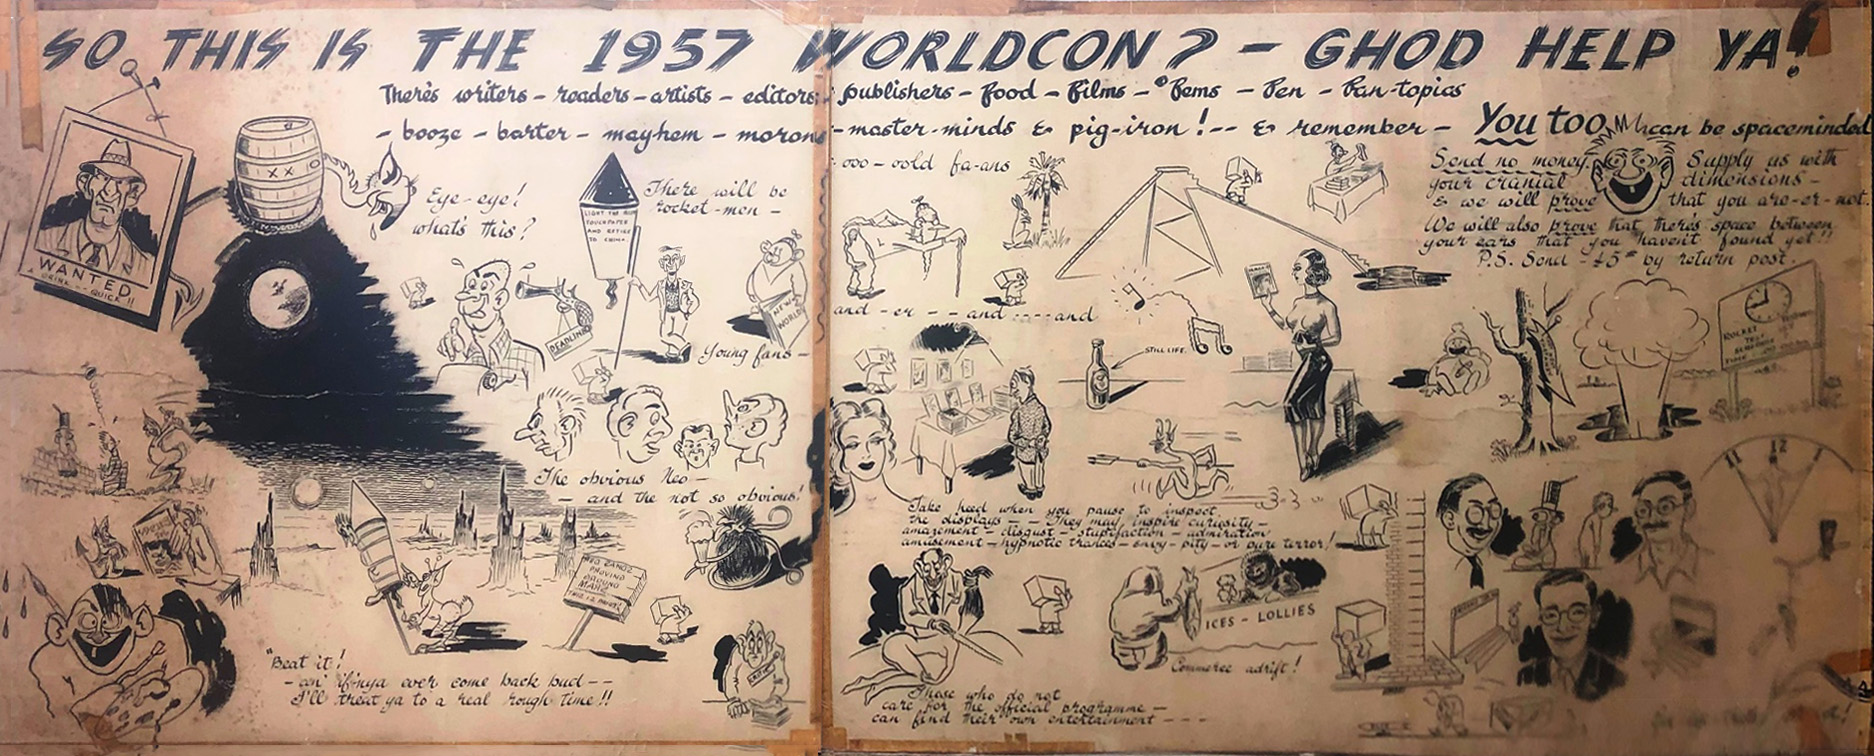 SO THIS IS THE 1957 WORLDCON? - GHOD HELP YA!
There's writers - readers - artists - editors - publishers - food - films - Fems - Fen - fan-topics
- booze - barter - mayhem - morons - master-minds & pig-iron! -- & remember -
You too can be spaceminded
Send no money. Supply us with
your cranial dimensions -
& we will prove that you are-er-not.
We will also prove that there's space between
your ears that you haven't found yet!!
P.S. Send £5 by return post.
WANTED
DRINK -- QUICK!!
XX
Eye-eye!
what's this?
There will be
rocket-men -
LIGHT THE BLUE
TOUCHPAPER
AND RETIRE
TO CHINA.
DEADLINE
NEW
WORLDS
Young fans -
- ooo-oold fa-ans
and - er - - - and ---- and
STILL LIFE.
ROCKET
TEST
The obvious Neo -
- and the not so obvious!
Take heed when you pause to inspect
the displays - - They may inspire curiosity -
amazement - disgust - stupifaction - admiration
amusement - hypnotic trances - envy - pity - or pure terror!
11 12
PROVING
GROUND
MARS
"Beat it!
- an' if'nya ever come back bud --
I'll treat ya to a real rough time!!
ICES - LOLLIES
Commerce adrift!
Those who do not
care for the official programme -
can find their own entertainment ----